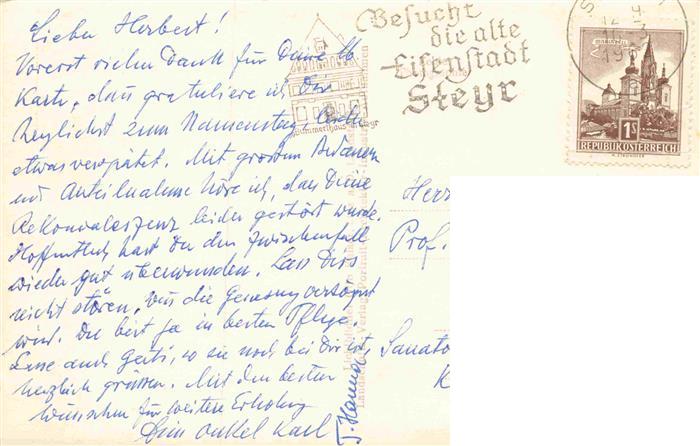 Lieber Herbert!
Vorerst vielen Dank für Deine lb
Karte, dann gratuliere ich Dir
herzlichst zum Namenstag, leider
etwas verspätet. Mit grossem Bedauern
und Anteilnahme höre ich, dass Deine
Rekonvaleszenz leider gestört wurde.
Hoffentlich hast Du den Zwischenfall
wieder gut überwunden. Lass Dirs
nicht stören, wenn die Genesung verzögert
wird. Du bist ja in besten Pflege.
Lasse auch Gerti, wo sie noch bei Dir ist,
herzlich grüssen. Mit den besten
Wünschen für weitere Erholung
Dein Onkel Karl
T. Hanna
Besucht
die alte
Eisenstadt
Steyr
Bummerlhaus Steyr
1S
REPUBLIK ÖSTERREICH
Herrn
Prof.
Sanato
K